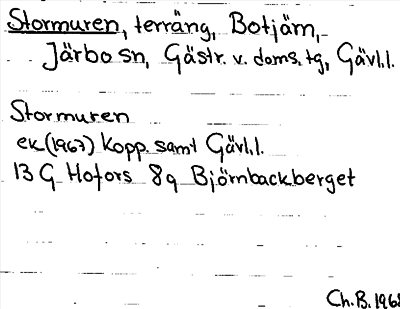 Stormuren, terräng, Botjärn,
Järbo sn, Gästr. v. doms. tg, Gävl.l.
Stormuren
ek (1967) Kopp. samt Gävl.l.
13 G Hofors 8g Björnbackberget
Ch.B. 1968